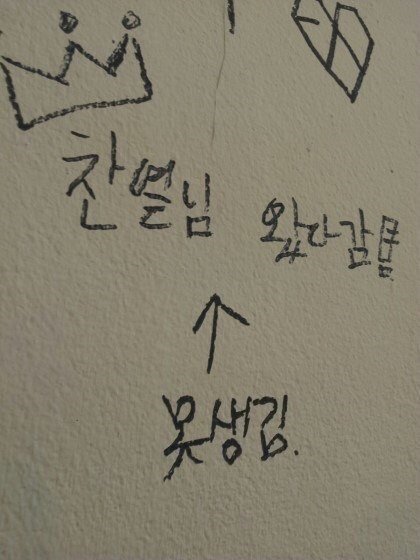 찬열님
왔다감뿅
못생김.